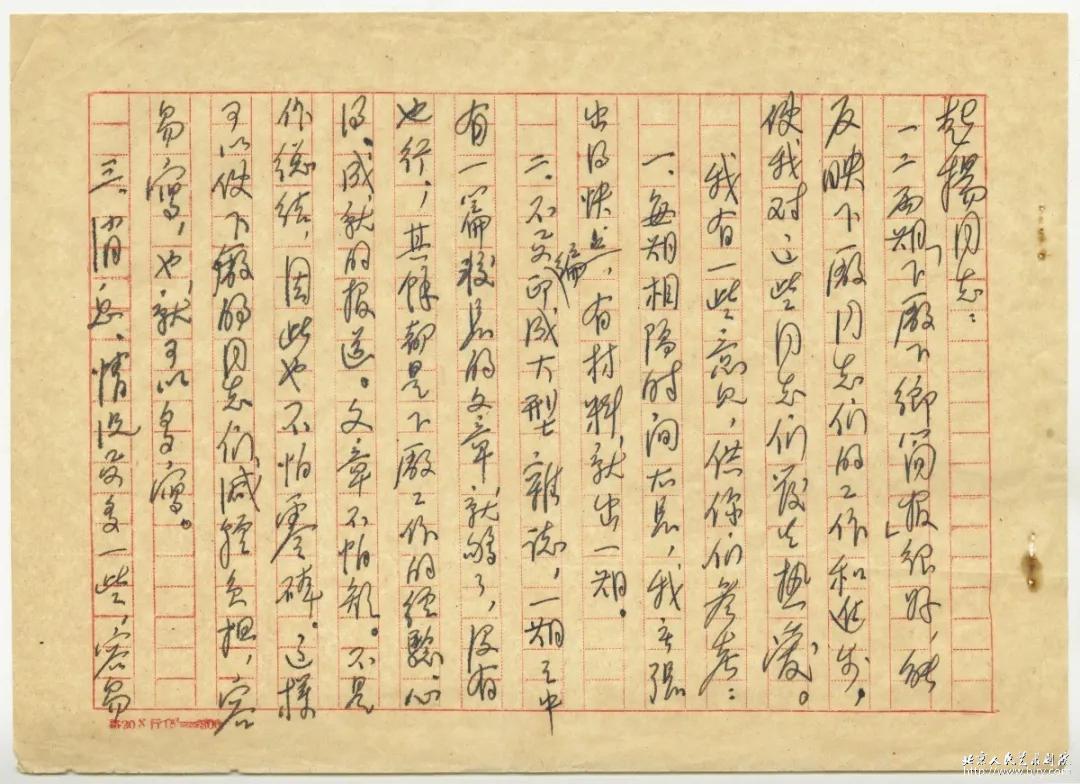 起揚同志：
一二两期「下廠下鄉简报」很好，能
反映下廠同志们的工作和进步，
使我对这些同志们发生热爱。
我有一些意见，供你们参考：
一、每期相隔时间太長，我主張
出得快些，有材料就出一期。
二、不要编印成大型雜誌，一期之中
有一篇較長的文章就够了，没有
也行，其餘都是下廠工作的经驗心
得、成就的报道。文章不怕短。不是
作總结，因此也不怕零碎。这样
可以使下廠的同志们减轻负担，容
易寫，也就可以多寫。
三、消息、情况要多一些，容易
北京人民艺术剧院
http://www.bjry.com